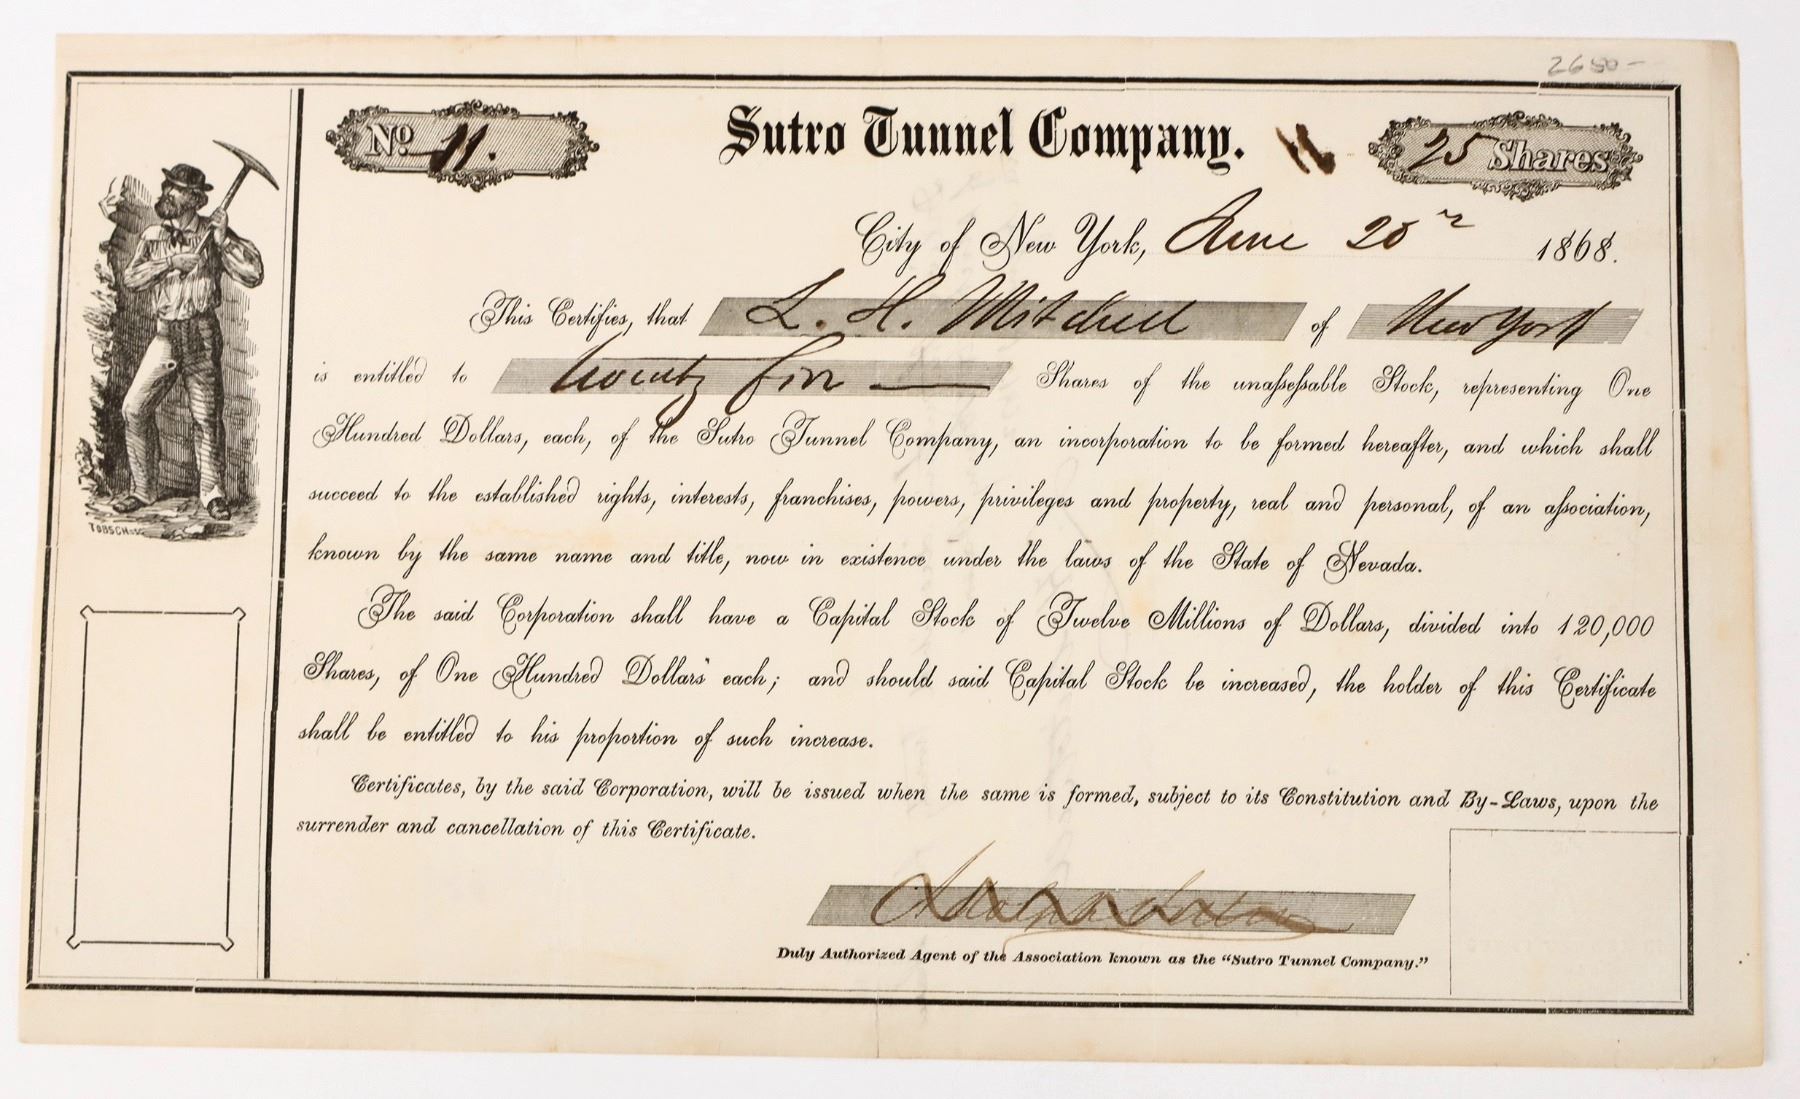 2650-
No. 11.
Sutro Tunnel Company.
25 Shares
City of New York, June 20th 1868.
This Certifies, that L. H. Mitchell of New York
is entitled to twenty five Shares of the unassessable Stock, representing One
Hundred Dollars, each, of the Sutro Tunnel Company, an incorporation to be formed hereafter, and which shall
succeed to the established rights, interests, franchises, powers, privileges and property, real and personal, of an association,
known by the same name and title, now in existence under the laws of the State of Nevada.
The said Corporation shall have a Capital Stock of Twelve Millions of Dollars, divided into 120,000
Shares, of One Hundred Dollars each; and should said Capital Stock be increased, the holder of this Certificate
shall be entitled to his proportion of such increase.
Certificates, by the said Corporation, will be issued when the same is formed, subject to its Constitution and By-Laws, upon the
surrender and cancellation of this Certificate.
Adolph Sutro
Duly Authorized Agent of the Association known as the "Sutro Tunnel Company."